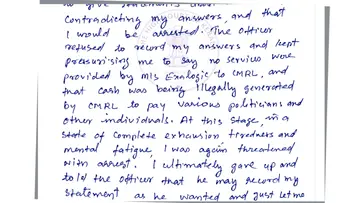 to give statements
Contradicting my answers, and that
I would be arrested. The officer
refused to record my answers and kept
pressurising me to say no services were
provided by M/s Exalogic to CMRL, and
that cash was being illegally generated
by CMRL to pay various politicians and
other individuals. At this stage, in a
state of complete exhaustion tiredness and
mental fatigue I was again threatened
with arrest. I ultimately gave up and
told the officer that he may record my
statement as he wanted and just let me